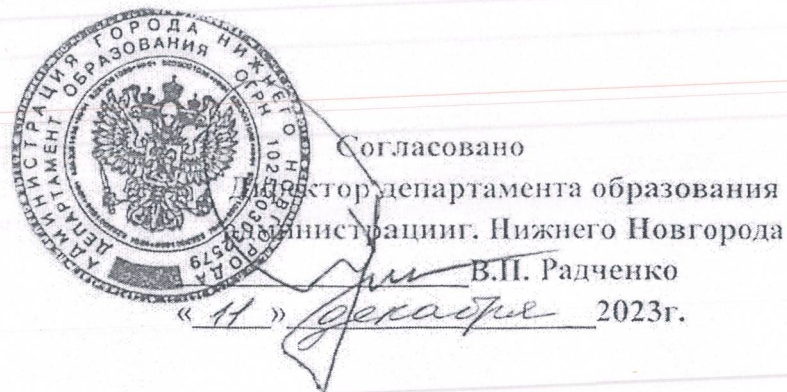 АДМИНИСТРАЦИЯ ГОРОДА НИЖНЕГО НОВГОРОДА
ДЕПАРТАМЕНТ ОБРАЗОВАНИЯ ОГРН
Согласовано
Директор департамента образования
администрацииг. Нижнего Новгорода
В.П. Радченко
«11» декабря 2023г.